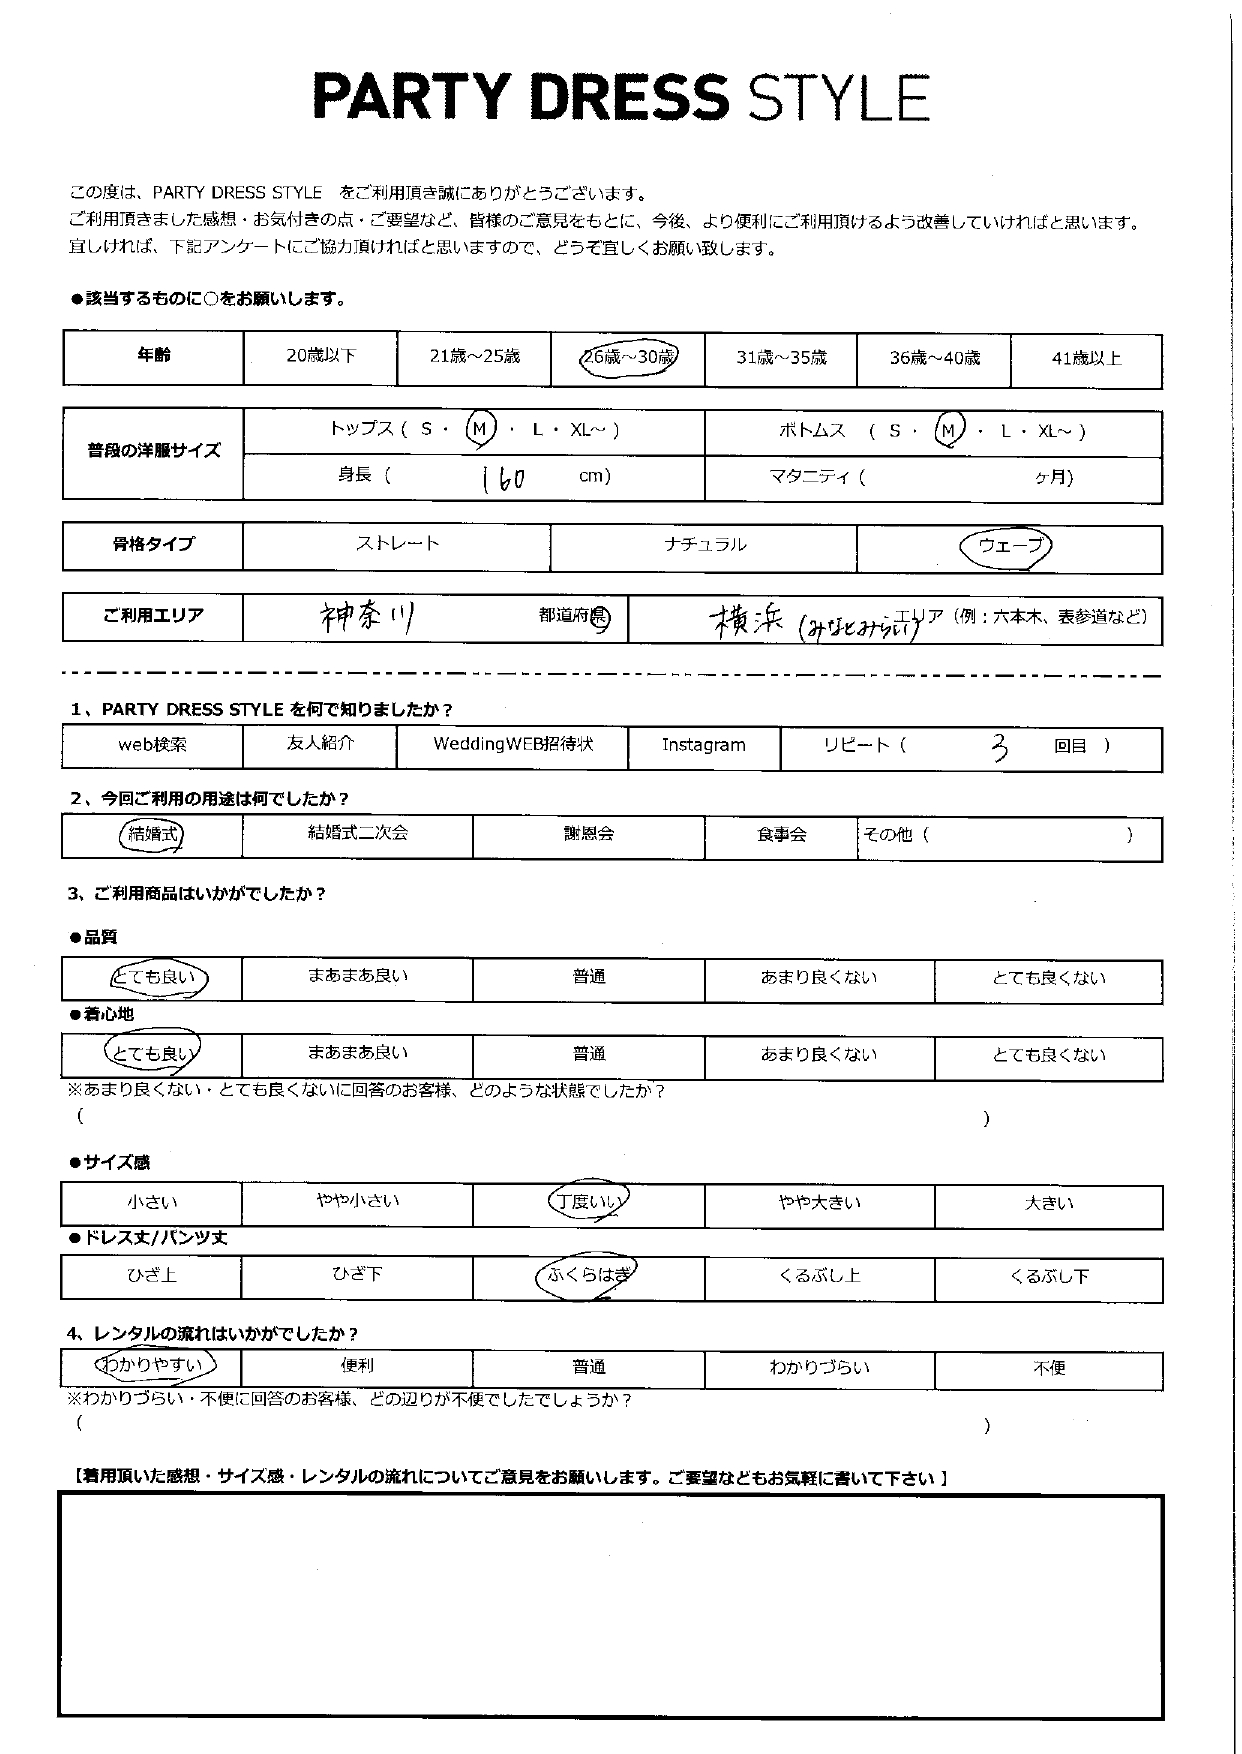 PARTY DRESS STYLE
この度は、PARTY DRESS STYLE をご利用頂き誠にありがとうございます。
ご利用頂きました感想・お気付きの点・ご要望など、皆様のご意見をもとに、今後、より便利にご利用頂けるよう改善していければと思います。
宜しければ、下記アンケートにご協力頂ければと思いますので、どうぞ宜しくお願い致します。
●該当するものに○をお願いします。
年齢 20歳以下 21歳～25歳 26歳～30歳 31歳～35歳 36歳～40歳 41歳以上
普段の洋服サイズ トップス ( S ・ M ・ L ・ XL～ ) ボトムス ( S ・ M ・ L ・ XL～ )
身長 ( 160 cm) マタニティ ( ヶ月)
骨格タイプ ストレート ナチュラル ウェーブ
ご利用エリア 神奈川 都道府県 横浜 (みなとみらい) エリア（例：六本木、表参道など）
1、PARTY DRESS STYLE を何で知りましたか？
web検索 友人紹介 WeddingWEB招待状 Instagram リピート ( 3 回目 )
2、今回ご利用の用途は何でしたか？
結婚式 結婚式二次会 謝恩会 食事会 その他 ( )
3、ご利用商品はいかがでしたか？
●品質
とても良い まあまあ良い 普通 あまり良くない とても良くない
●着心地
とても良い まあまあ良い 普通 あまり良くない とても良くない
※あまり良くない・とても良くないに回答のお客様、どのような状態でしたか？
( )
●サイズ感
小さい やや小さい 丁度いい やや大きい 大きい
●ドレス丈/パンツ丈
ひざ上 ひざ下 ふくらはぎ くるぶし上 くるぶし下
4、レンタルの流れはいかがでしたか？
わかりやすい 便利 普通 わかりづらい 不便
※わかりづらい・不便に回答のお客様、どの辺りが不便でしたでしょうか？
( )
【着用頂いた感想・サイズ感・レンタルの流れについてご意見をお願いします。ご要望などもお気軽に書いて下さい】